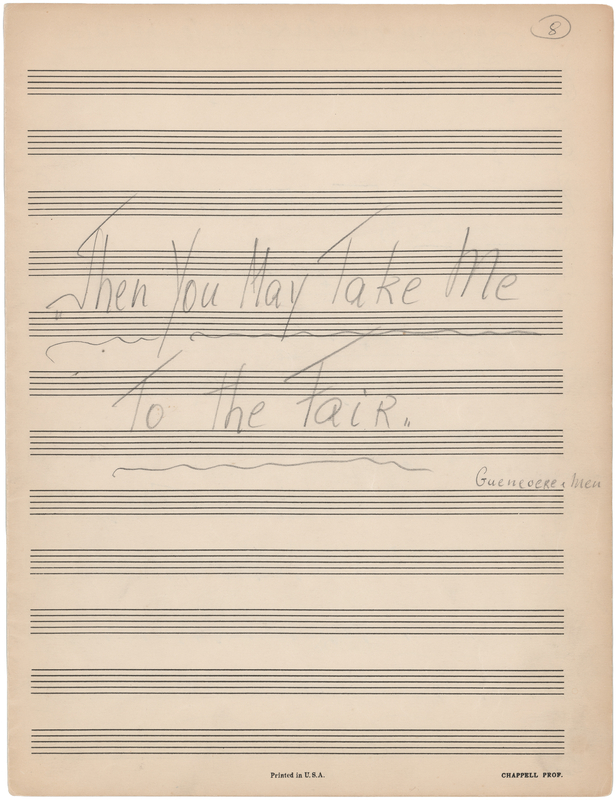 8
„Then You May Take Me
To the Fair„
Guenevere & Men
Printed in U.S.A.
CHAPPELL PROF.